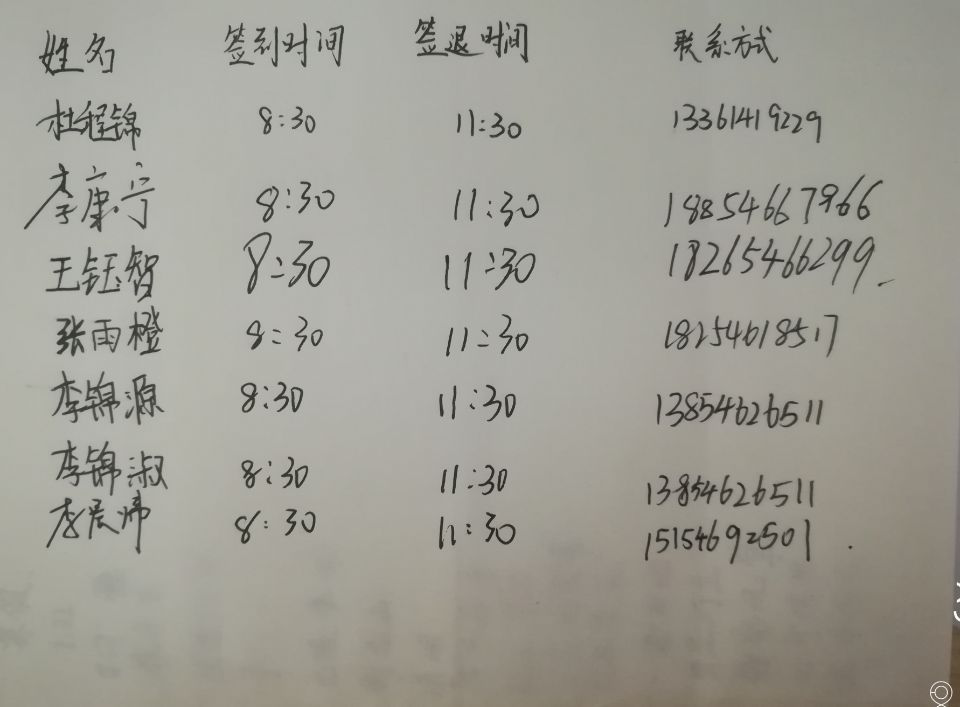 姓名 签到时间 签退时间 联系方式
杜程锦 8:30 11:30 13361419229
李康宁 8:30 11:30 18854667966
王钰智 8:30 11:30 18265466299
张雨橙 8:30 11:30 18254618517
李锦源 8:30 11:30 13854626511
李锦淑 8:30 11:30 13854626511
8:30 11:30 15154692501